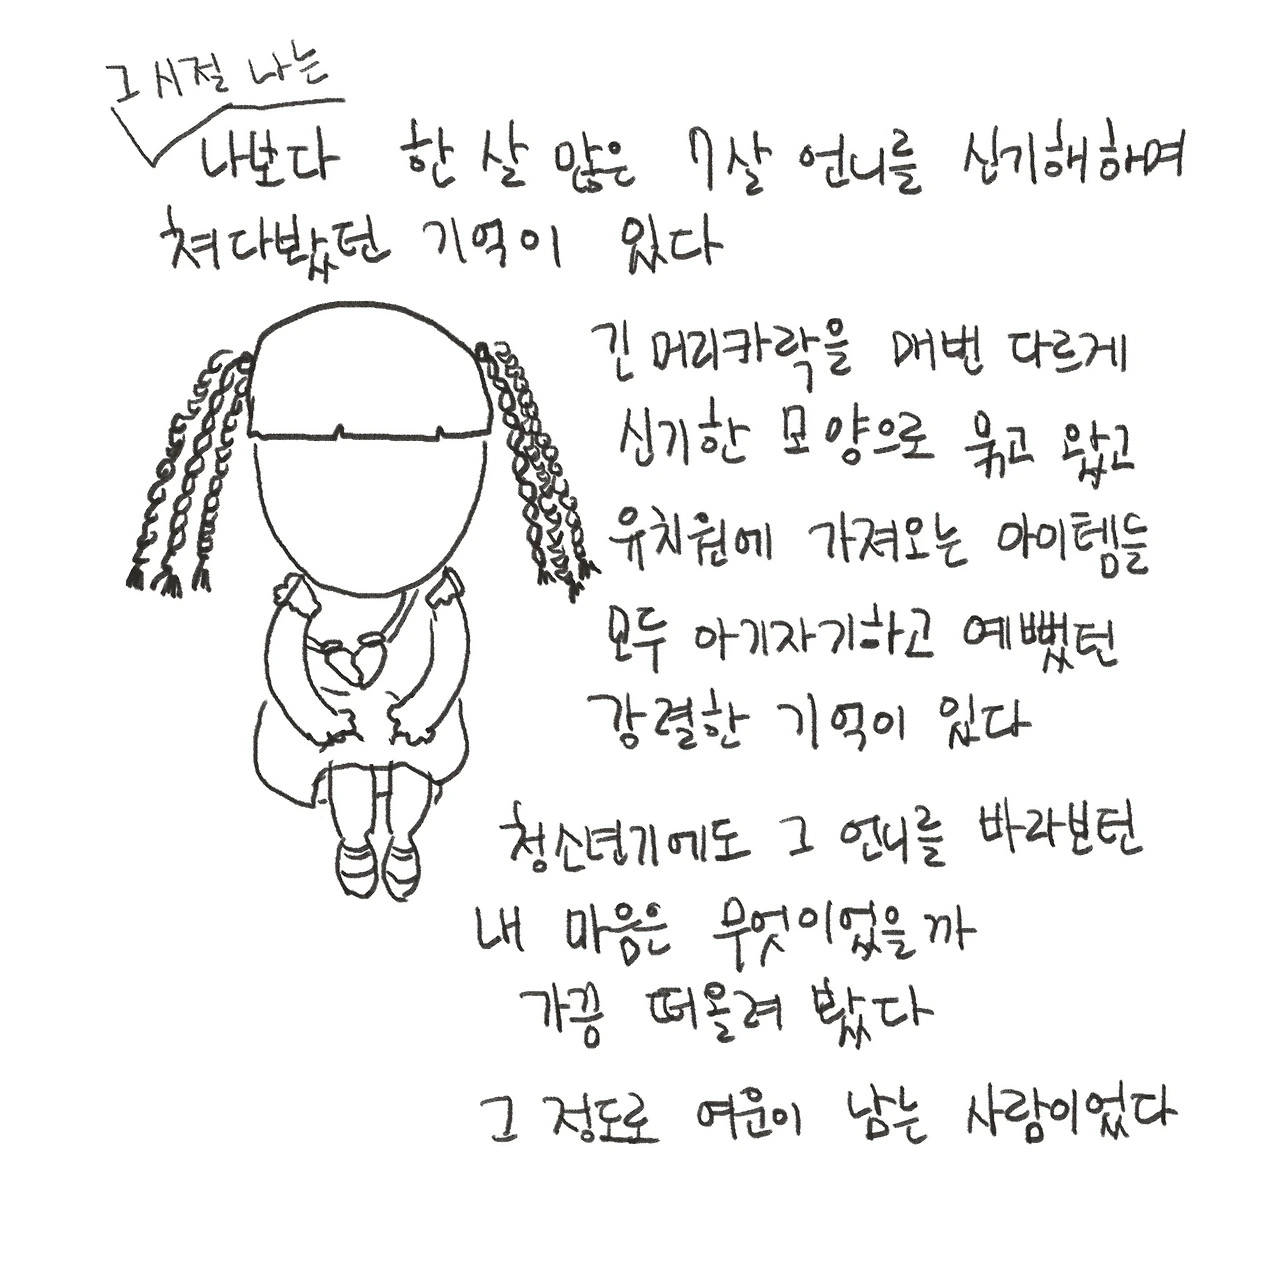 그 시절 나는
나보다 한 살 많은 7살 언니를 신기해하며
쳐다봤던 기억이 있다
긴 머리카락을 매번 다르게
신기한 모양으로 묶고 왔고
유치원에 가져오는 아이템들
모두 아기자기하고 예뻤던
강렬한 기억이 있다
청소년기에도 그 언니를 바라보던
내 마음은 무엇이었을까
가끔 떠올려 봤다
그 정도로 여운이 남는 사람이었다